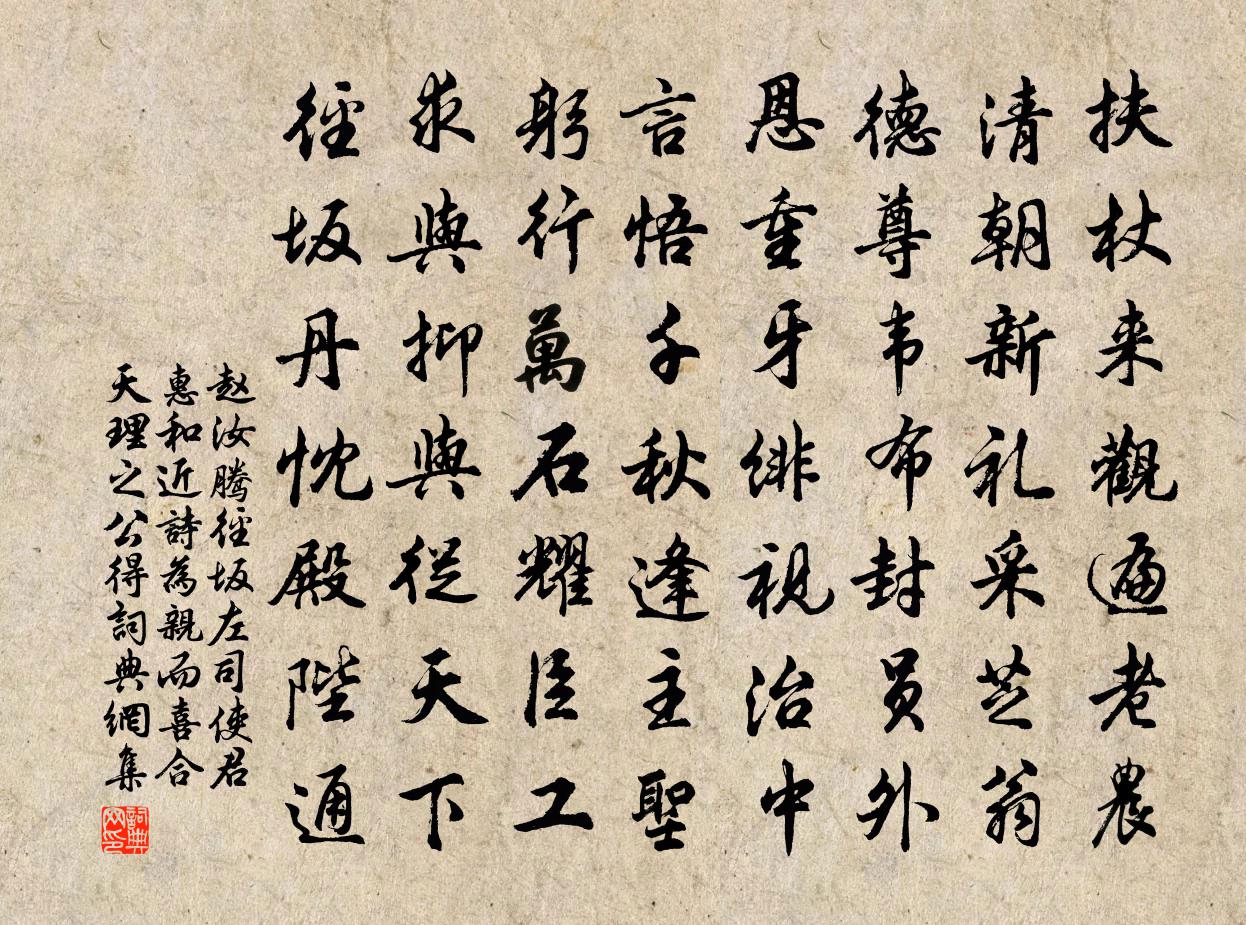 扶杖来觀遍老農
清朝新礼采芝翁
德尊韦布封员外
恩重牙緋視治中
言悟千秋逢主聖
躬行萬石耀臣工
求與抑與從天下
徑坂丹忱殿陛通
赵汝腾徑坂左司使君
惠和近詩為親而喜合
天理之公得詞典網集
詞典网印